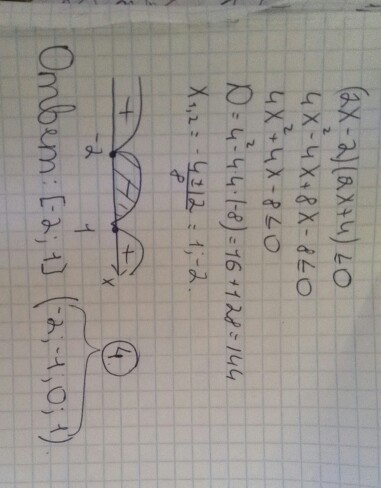 (2x-2)(2x+4)≤0
4x²-4x+8x-8≤0
4x²+4x-8≤0
D=4²-4·4·(-8)=16+128=144
x₁,₂=-4±12/8=1;-2.
+ - +
-2 1 x
Ответ: [-2;1] (-2;-1;0;1).
4